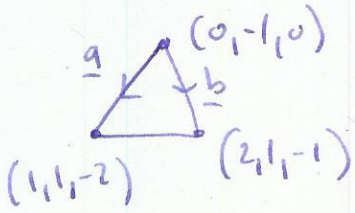 (0,-1,0)
a
b
(1,1,-2)
(2,1,-1)